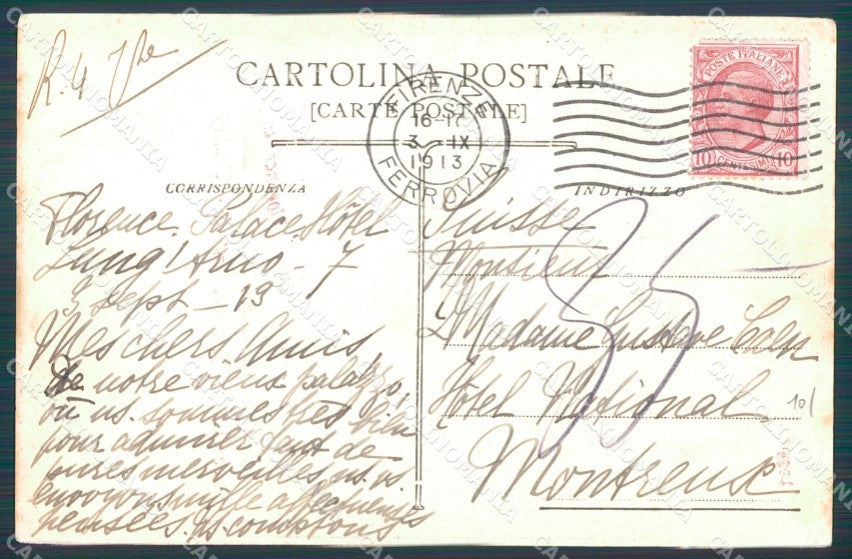 R. 4 Vre
CARTOLINA POSTALE
[CARTE POSTALE]
FIRENZE
16-17
3 IX
1913
FERROVIA
POSTE ITALIANE
10 CENTESIMI 10
CORRISPONDENZA
INDIRIZZO
Florence. Palace Hôtel
Lung'Arno - 7
3 sept - 13
Mes chers Amis
De notre vieux palazzo,
où ns. sommes très bien
pour admirer tant de
pures merveilles, ns. vs.
envoyons mille affectueuses
pensées. ns. comptons
Suisse
Monsieur
& Madame Gustave Coen
Hôtel National
Montreux
35
101
CARTOLINOMANIA